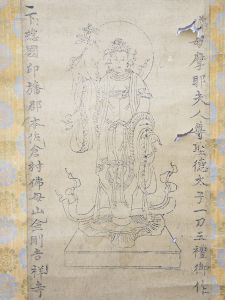 母摩耶夫人尊聖德太子一刀三禮御作
下總國印旛郡本佐倉村佛母山金剛吉祥寺